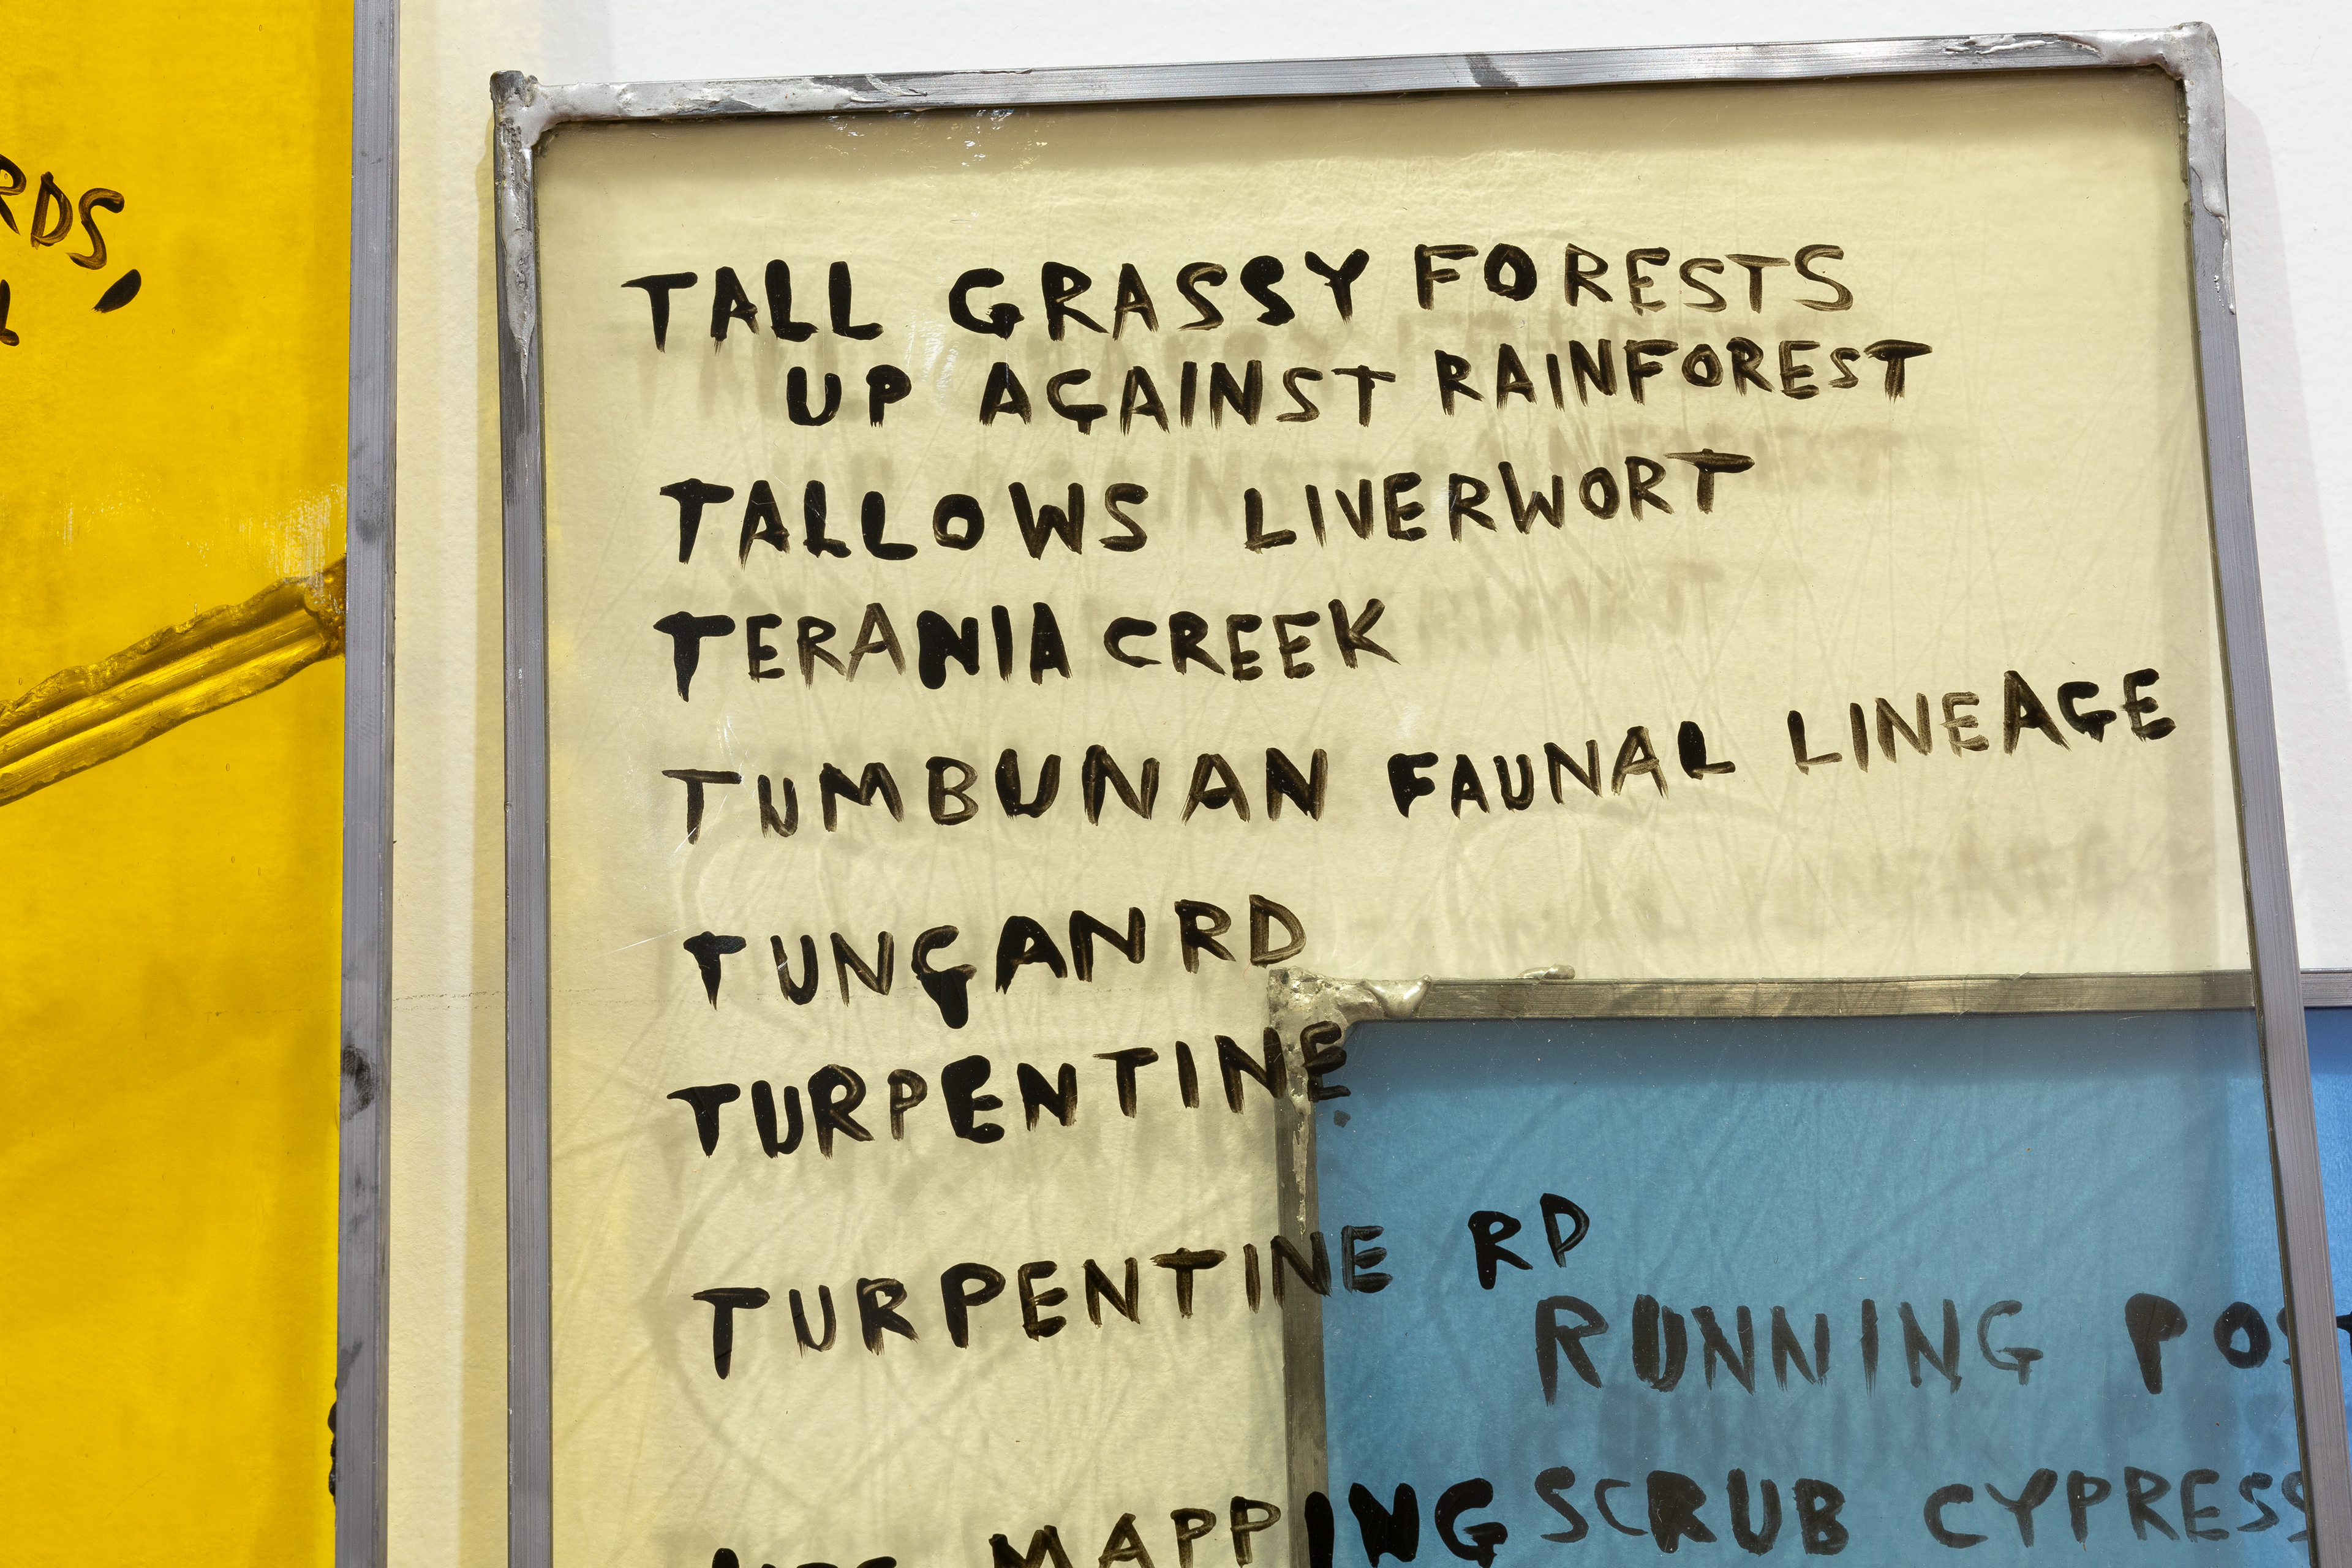 TALL GRASSY FORESTS
UP AGAINST RAINFOREST
TALLOWS LIVERWORT
TERANIA CREEK
TUMBUNAN FAUNAL LINEAGE
TUNGAN RD
TURPENTINE
TURPENTINE RD
RUNNING
MAPPING
SCRUB CYPRESS